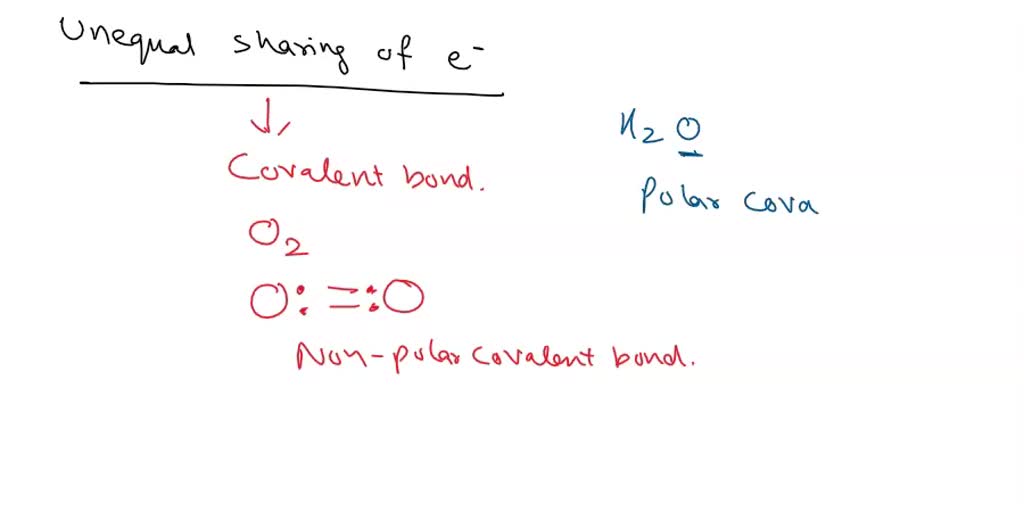 Unequal sharing of e⁻
↓
Covalent bond.
O₂
O: =:O
Non-polar covalent bond.
H₂O
Polar cova